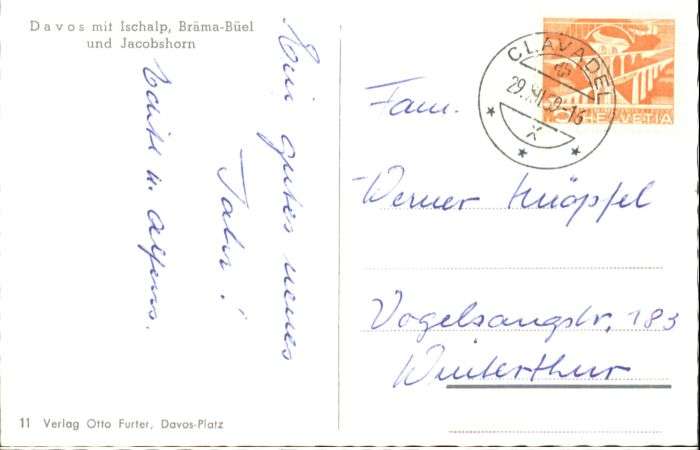 Davos mit Ischalp, Bräma-Büel
und Jacobshorn
Ein gutes neues
Jahr!
u.
11 Verlag Otto Furter, Davos-Platz
CLAVADEL
HELVETIA
Fam.
Werner Knöpfel
Vogelsangstr. 183
Winterthur